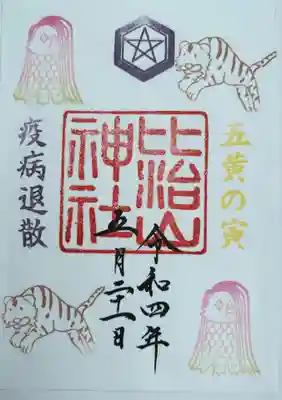 五黄の寅
比治山
神社
令和四年
五月二十一日
疫病退散